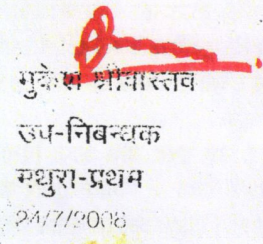 मुकेश श्रीवास्तव
उप-निबन्धक
मथुरा-प्रथम
24/7/2008